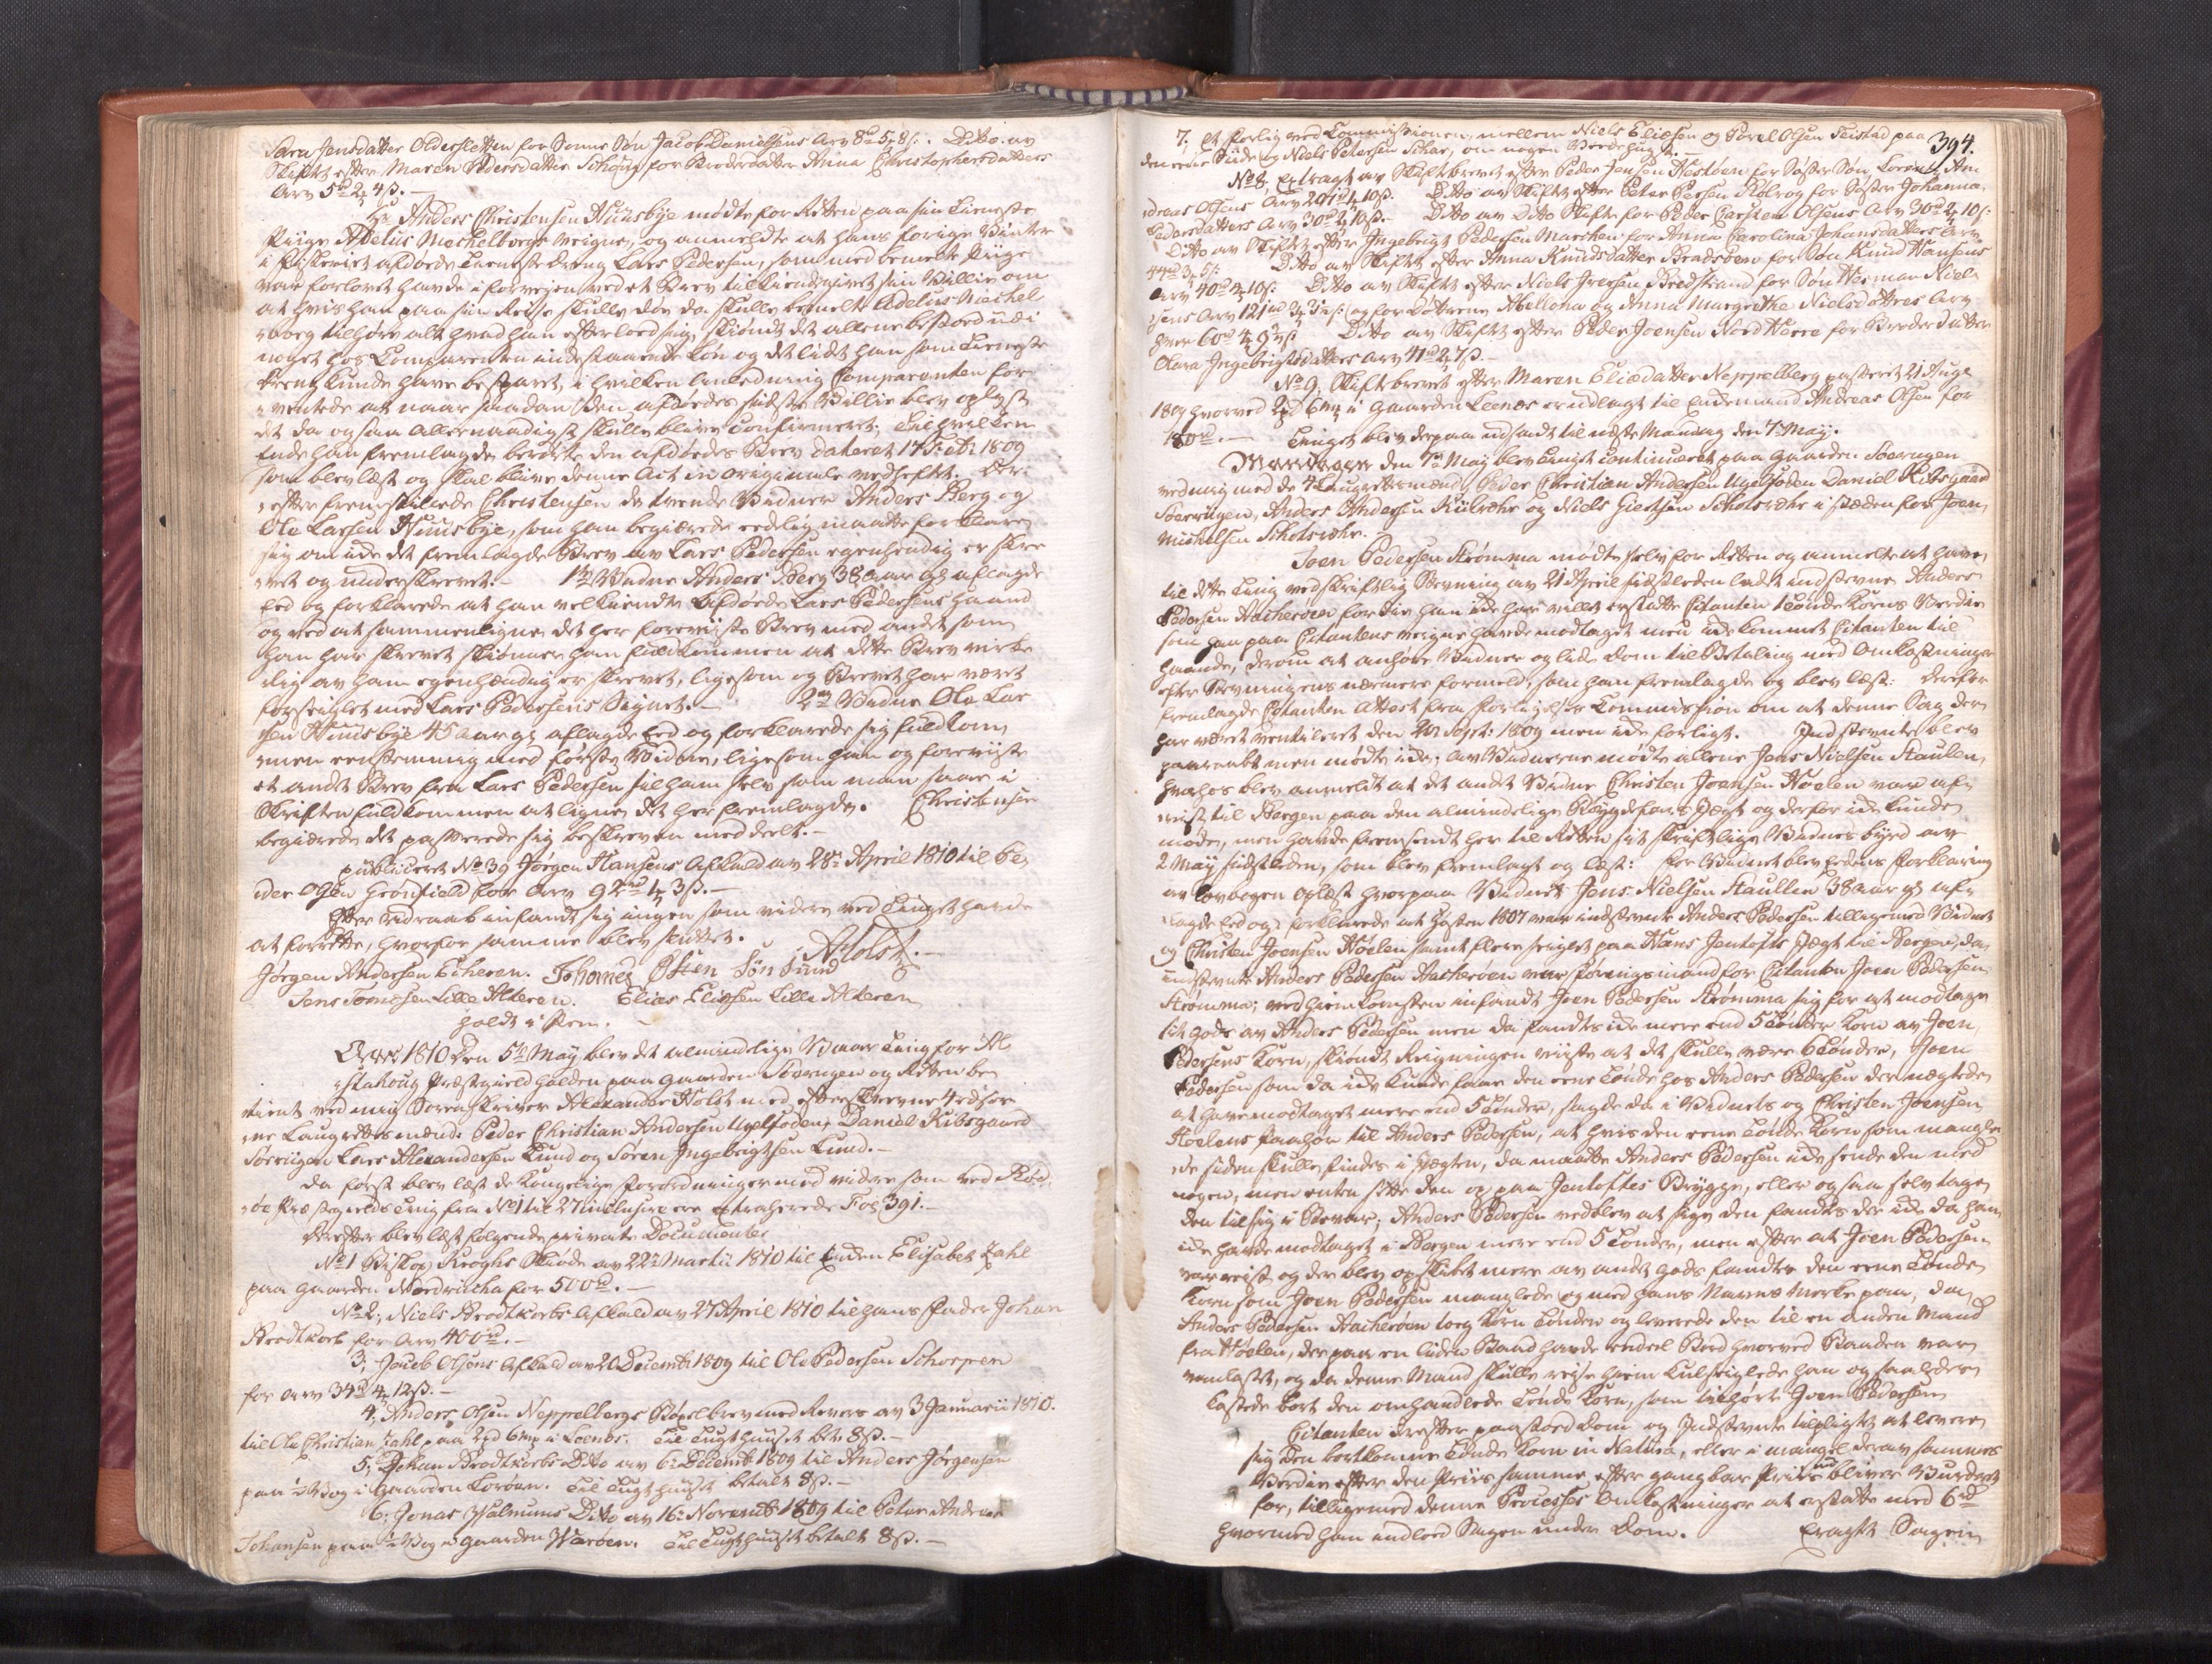 Sara Jensdatter Oldersletten for Sønne Søn Jacob Danielsens Arv 8rd 5 8s: Ditto av
Skiftet efter Maren Pedersdatter for Broderdatter Anna Christophersdatters
Arv 5rd 2 4s.
Hr Anders Christensen Huusbye mødte for Retten paa sin tieneste
Piige Adelus Mechelborgs veigne, og anmeldte at hans forige Vinter
i fiskeriet afdøde tieneste dreng Lars Pedersen, som med bemelte Piige
var forlovet havde i forvejen ved et Brev tilkiendegivet sin Villie om
at hvis han paa sin Reise skulle døe da skulle bemelte Adelus Mechel
borg tilhøre alt hvad han efterloed sig, skiøndt det allene bestoed udi
noget hos Comparenten indestaaende Løn og det lidet han som tieneste
dreng kunde have bespart, i hvilken anledning Comparenten for
ventede at naar saadan den afdødes sidste Villie blev oplyst
det da ogsaa allernaadigst skulle blive confirmeret; til hvilken
Ende han fremlagde berørte den afdødes Brev dateret 17 1809
som blev læst og skal blive denne Act in originale vedheftet. Der
efter fremstillede Christensen de tvende Vidner Anders Berg og
Ole Larsen Huusbye, som han begiærede eedelig maatte forklare
sig om ide det fremlagde Brev av Lars Pedersen egenhendig er skre
vet og underskrevet. 1te Vidne Anders Berg 38 aar gl aflagde
Eed og forklarede at han vel kiendte Afdøde Lars Pedersens haand
og ved at sammenligne det her foreviiste Brev med andet som
han har skrevet skiønner han fuldkommen at dette Brev virke
lig av ham egenhændig er skrevet, ligesom og Brevet har været
forseiglet med Lars Pedersens Signet. 2det Vidne Ole Lar
sen Huusbye 45 aar gl aflagde Eed og forklarede sig fuldkom
men eenstemmig med første Vidne, ligesom han og foreviiste
et andet Brev fra Lars Pedersen til ham selv som man saae i
Skriften fuldkommen at ligne det her fremlagde. Christensen
begiærede det passerede sig beskreven meddeelt.
publiceret No 39 Jørgen Hansens Afkald av 28de April 1810 til Pe
der Olsen Grønfield for Arv 92rd 1 3s.
Efter udraab infandt sig ingen som videre ved Tinget havde
at forrette, hvorfor samme blev sluttet. AHolst
Jørgen Andersen Echeren. Johannes Osten Søn Sund
Jens Tomesen Lille Alteren. Elias Eliesen Lille Alteren
holdt i Pen.
Anno 1810 den 5te May blev det almindelige Vaar Ting for Al
stahoug Præstegield holden paa Gaarden Søvrigen og Retten be
tient ved mig Sorenskriver Alexander Holst med efterskrevne 4 edsvor
ne Laugrettesmænd: Peder Christian Andersen Ugelfoden, Daniel Kibsgaard
Søvrigen Lars Alexandersen Lund og Søren Ingebrigtsen Lund.
Da først blev læst de kongelige forordninger med videre som ved Rød
øe Præstegields Ting fra No 1 til 27 inclusive ere extraherede Fol 391.
derefter blev læst følgende private Documenter
No 1 Biskop Kroghs Skiøde av 22de Martii 1810 til Enken Elisabet Zahl
paa Gaarden for 500rd.
No 2, Niels Brodtkorbs Afkald av 27 April 1810 til hans Fader Johan
Brodtkorb for Arv 400rd.
3, Jacob Olsens Afkald av 20 Decembr 1809 til Ole Pedersen Schorpen
for Arv 34rd 4 12s.
4, Anders Olsen Neppelbergs Bøxelbrev med Revers av 3 Januarii 1810.
til Ole Christian Zahl paa 2pd 6mk i Leenes. Til Tugthuuset bt: 8s.
5, Johan Brodtkorbs Ditto av 6te Decemb: 1809 til Anders Jørgensen
paa ½ Vog i Gaarden Torøen. Til Tugthuuset betalt 8s.
6, Jonas Ditto av 16de Novemb 1809 til Peter Andreas
Johansen paa ½ Vog i Gaarden Warøen. Til Tugthuuset betalt 8s.
394.
7, Et forlig ved Commissionen, mellem Niels Eliesen og Poval Olsen Teistad paa
den eene Side og Niels Petersen Schar, om nogen
No 8, Extract av Skiftebrevet efter Peder Jensen Hestøen for Søster Søn Lorentz An
dreas Olsens Arv 20rd 4 10s. Ditto av Skiftet efter Peter Persen Kolrog for Søster Johanna
Pedersdatters Arv 30rd 2 10s. Ditto av Ditto Skifte for Peder Carsten Olsens Arv 30rd 2 10s:
Ditto av Skiftet efter Ingebrigt Pedersen Marchen for Anna Carolina Johansdatters Arv
44rd 3 6s: Ditto av Skiftet efter Anna Knudsdatter Bradsøen for Søn Knud Hansens
Arv 40rd 4 10s: Ditto av Skiftet efter Niels Iversen Bredstrand for Søn Herman Niel
sens Arv 121rd 3 3s: og for Døttrene Abellona og Anna Margrethe Nielsdøttres Arv
hver 60rd 4 9s Ditto av Skiftet efter Peder Joensen Nord Herre for Broderdatter
Clara Ingebrigtsdatters Arv 41rd 2 7s.
No 9, Skiftebrevet efter Maren Eliædatter Neppelberg passeret 21 Aug:
1809 hvorved 2pd 6mk i Gaarden Leenes er udlagt til Enkemand Andreas Olsen for
180rd. Tinget blev derpaa udsadt til næste Mandag den 7de May.
Mandagen den 7de May blev Tinget continueret paa Gaarden Søvrigen
ved mig med de 4 Laugrettesmænd, Peder Christian Andersen Ugelfoden Daniel Kibsgaard
Søvrigen, Anders Andersen Kulvehr og Niels Giertsen Schotsvehr i steden for Joen
Michelsen Schotsvehr.
Joen Pedersen Strømma mødte selv for Retten og anmelte at have
til dette Ting ved skriftlig Stevning av 21 April sidstleden ladet indstevne Anders
Pedersen Aacherøen fordie han ide har villet erstatte Citanten 1 Tønde Korns Verdie
som han paa Citantens veigne havde modtaget men ide kommet Citanten til
haande, derom at anhøre Vidner og lide Dom til Betaling med Omkostninger
efter Stevningens nærmere formeld, som han fremlagde og blev læst: derefter
fremlagde Citanten Attest fra Forligelses Commission om at denne Sag der
har været ventileret den 20 Sept: 1809 men ide forligt. Indstevnte blev
paaraabt men mødte ide; av Vidnerne mødte allene Jens Nielsen Staulen,
hvorhos blev anmeldt at det andet Vidne Christen Joensen Hoelen var af
reist til Bergen paa den almindelige Bøygdefars Jægt og derfor ide kunde
møde, men havde fremsendt her til Retten sit skriftlige Vidnesbyrd av
2 May sidstleden, som blev fremlagt og læst: for Vidnet blev Edens forklaring
av Lovbogen oplæst hvorpaa Vidnet Jens Nielsen Staullen 38 aar gl af
lagde Eed og forklarede at høsten 1807 var indstevnte Anders Pedersen tilligemed Vidnet
og Christen Joensen Hoelen samt flere seiglet paa Hans Jentofts Jægt til Bergen, da
indstevnte Anders Pedersen Aacherøen var føringsmand for Citanten Joen Pedersen
Strømma; ved hiemkomsten infandt Joen Pedersen Strømma sig for at modtage
sit Gods av Anders Pedersen men da fandtes ide mere end 5 Tønder Korn av Joen
Pedersens Korn, skiøndt Reigningen viiste at det skulle være 6 Tønder, Joen
Pedersen som da ide kunde faae den eene Tønde hos Anders Pedersen der nægtede
at have modtaget mere end 5 Tønder, sagde da i Vidnets og Christen Joensen
Hoelens paahør til Anders Pedersen, at hvis den eene Tønde Korn som mangle
de siden skulle findes i Jægten, da maatte Anders Pedersen ide sende den med
nogen, men enten sette den op paa Jentoftes Brygge, eller ogsaa selv tage
den til sig i Bevar; Anders Pedersen vedblev at sige den fandtes der ide da han
ide havde modtaget i Bergen mere end 5 Tønder, men efter at Joen Pedersen
var reist og der blev opskibet mere av andet gods fandtes den eene Tønde
Korn som Joen Pedersen manglede og med hans Navns Merke paa, da
Anders Pedersen Aacherøen toeg Korn Tønden og leverede den til en anden Mand
fra Hoelen, der paa en liden Baad havde endeel Bord hvorved Baaden var
vanlastet, og da denne Mand skulle reise hiem kulseiglede han og saaledes
kastede bort den omhandlede Tønde Korn, som tilhørte Joen Pedersen
Citanten derefter paastoed Dom og Indstevnte tilpligtet at levere
sig den bortkomne Tønde Korn in Natura, eller i mangel derav sammes
Verdie efter den Priis samme efter gangbar Priis nu bliver Vurderet
for, tilligemed denne Processes Omkostninger at erstatte med 6rd
hvormed han indloed Sagen under Dom. Eragtet Sagen